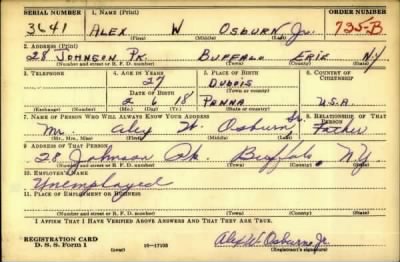 SERIAL NUMBER 1. NAME (Print) ORDER NUMBER
3641 ALEX W OSBURN Jr. 735-B
(First) (Middle) (Last)
2. ADDRESS (Print)
28 JOHNSON PK. BUFFALO ERIE NY
(Number and street or R. F. D. number) (Town) (County) (State)
3. TELEPHONE 4. AGE IN YEARS 5. PLACE OF BIRTH 6. COUNTRY OF CITIZENSHIP
27 DUBOIS
DATE OF BIRTH (Town or county)
2 6 18 PENNA U.S.A.
(Exchange) (Number) (Mo.) (Day) (Yr.) (State or country)
7. NAME OF PERSON WHO WILL ALWAYS KNOW YOUR ADDRESS 8. RELATIONSHIP OF THAT PERSON
Mr. Alex W. Osburn Sr. Father
(Mr., Mrs., Miss) (First) (Middle) (Last)
9. ADDRESS OF THAT PERSON
28 Johnson Pk. Buffalo, N.Y.
(Number and street or R. F. D. number) (Town) (County) (State)
10. EMPLOYER'S NAME
Unemployed
11. PLACE OF EMPLOYMENT OR BUSINESS
(Number and street or R. F. D. number) (Town) (County) (State)
I AFFIRM THAT I HAVE VERIFIED ABOVE ANSWERS AND THAT THEY ARE TRUE.
REGISTRATION CARD
D. S. S. Form 1 (over) 16-17105 Alex W. Osburn Jr.
(Registrant's signature)